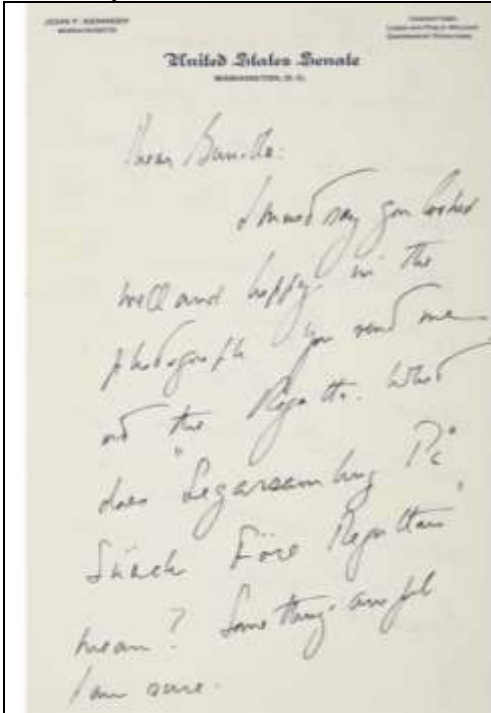 JOHN F. KENNEDY
MASSACHUSETTS
COMMITTEES:
LABOR AND PUBLIC WELFARE
GOVERNMENT OPERATIONS
United States Senate
WASHINGTON, D. C.
Dear Gunilla:
I must say you looked
well and happy in the
photograph you send me
at the Regatta. What
does "Segarsamling På
Süach Före Regattan"
mean? Something awful
I am sure.